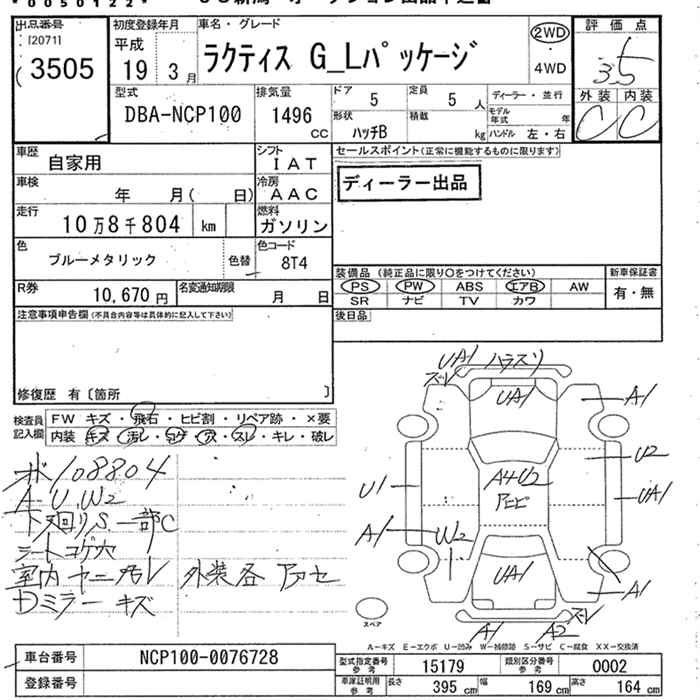 *0050122*
出品番号
I20711
3505
初度登録年月
平成
19 3月
車名・グレード
ラクティス G_Lパッケージ
2WD
・
4WD
評価点
3.5
外装 内装
C C
型式
DBA-NCP100
排気量
1496
CC
ドア
5
定員
5 人
ディーラー・並行
モデル年式 年
形状
ハッチB
積載
kg
ハンドル 左・右
車歴
自家用
シフト
IAT
車検
年 月( 日)
冷房
AAC
走行
10万8千804 km
燃料
ガソリン
色
ブルーメタリック
色替
色コード
8T4
R券
10,670 円
名変通知期限
月 日
セールスポイント(正常に機能するものに限ります)
ディーラー出品
装備品 (純正品に限り○をつけてください)
PS PW ABS エアB AW
SR ナビ TV カワ
新車保証書
有・無
後日品
注意事項申告欄 (不具合内容等は具体的に記入して下さい)
修復歴 有 〔箇所 〕
検査員記入欄
FW キズ・飛石・ヒビ割・リペア跡・×要
内装 キズ・汚レ・コゲ・穴・スレ・キレ・破レ
ボ108804
A U.W2
下廻りS.一部C
シートコゲ穴
室内ヤニ汚レ 外装各アセ
Dミラーキズ
UA1 ハラスリ
ズレ
UA1
A1
U2
A4U2
U1
UA1
A1
W2
UA1
A1
ズレ
A1 A2
スペア
A-キズ E-エクボ U-凹み W-補修跡 S-サビ C-腐食 XX-交換済
車台番号
NCP100-0076728
登録番号
型式指定番号
参考
15179
類別区分番号
参考
0002
車庫証明用
参考
長さ 395 cm 幅 169 cm 高さ 164 cm